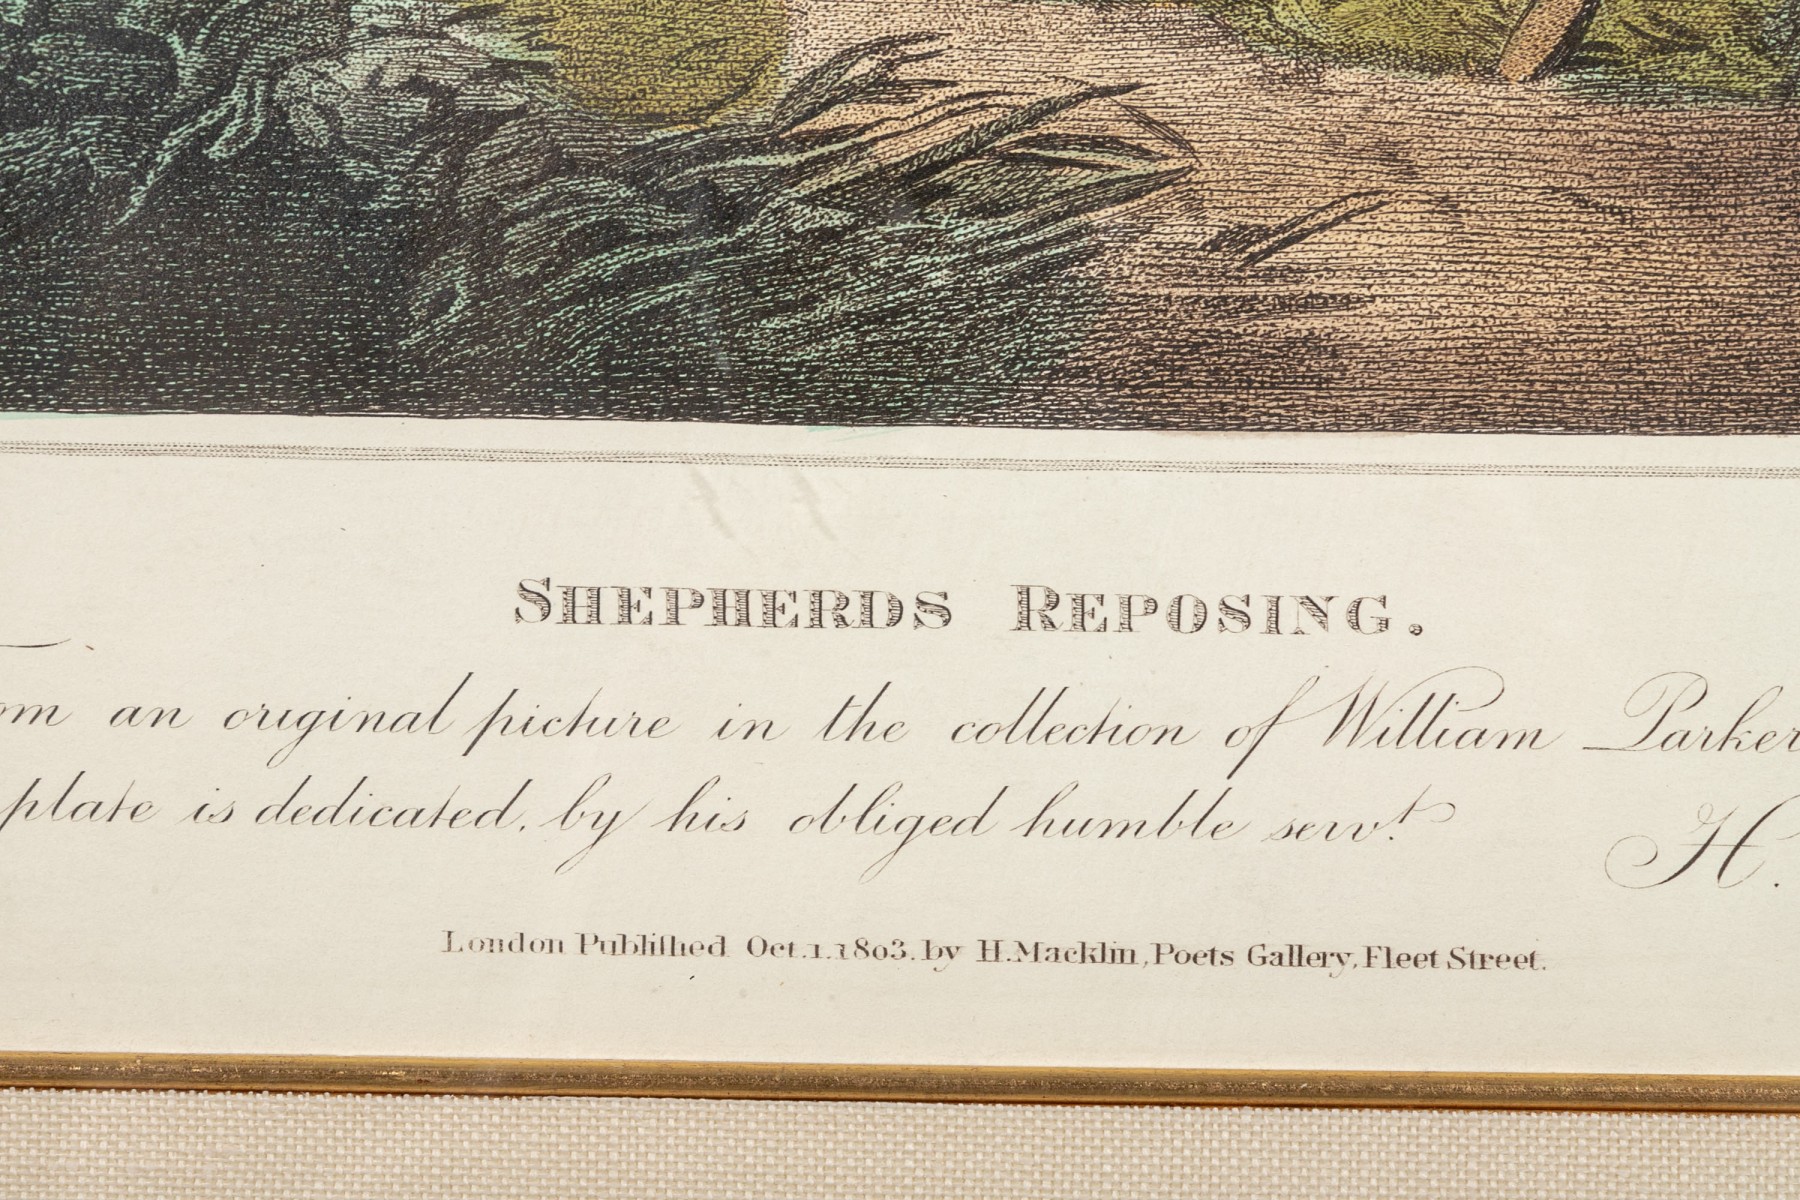 SHEPHERDS REPOSING.
an original picture in the collection of William Parker
plate is dedicated, by his obliged humble servt.
H.
London Publiſhed Oct. 1. 1803. by H. Macklin, Poets Gallery, Fleet Street.